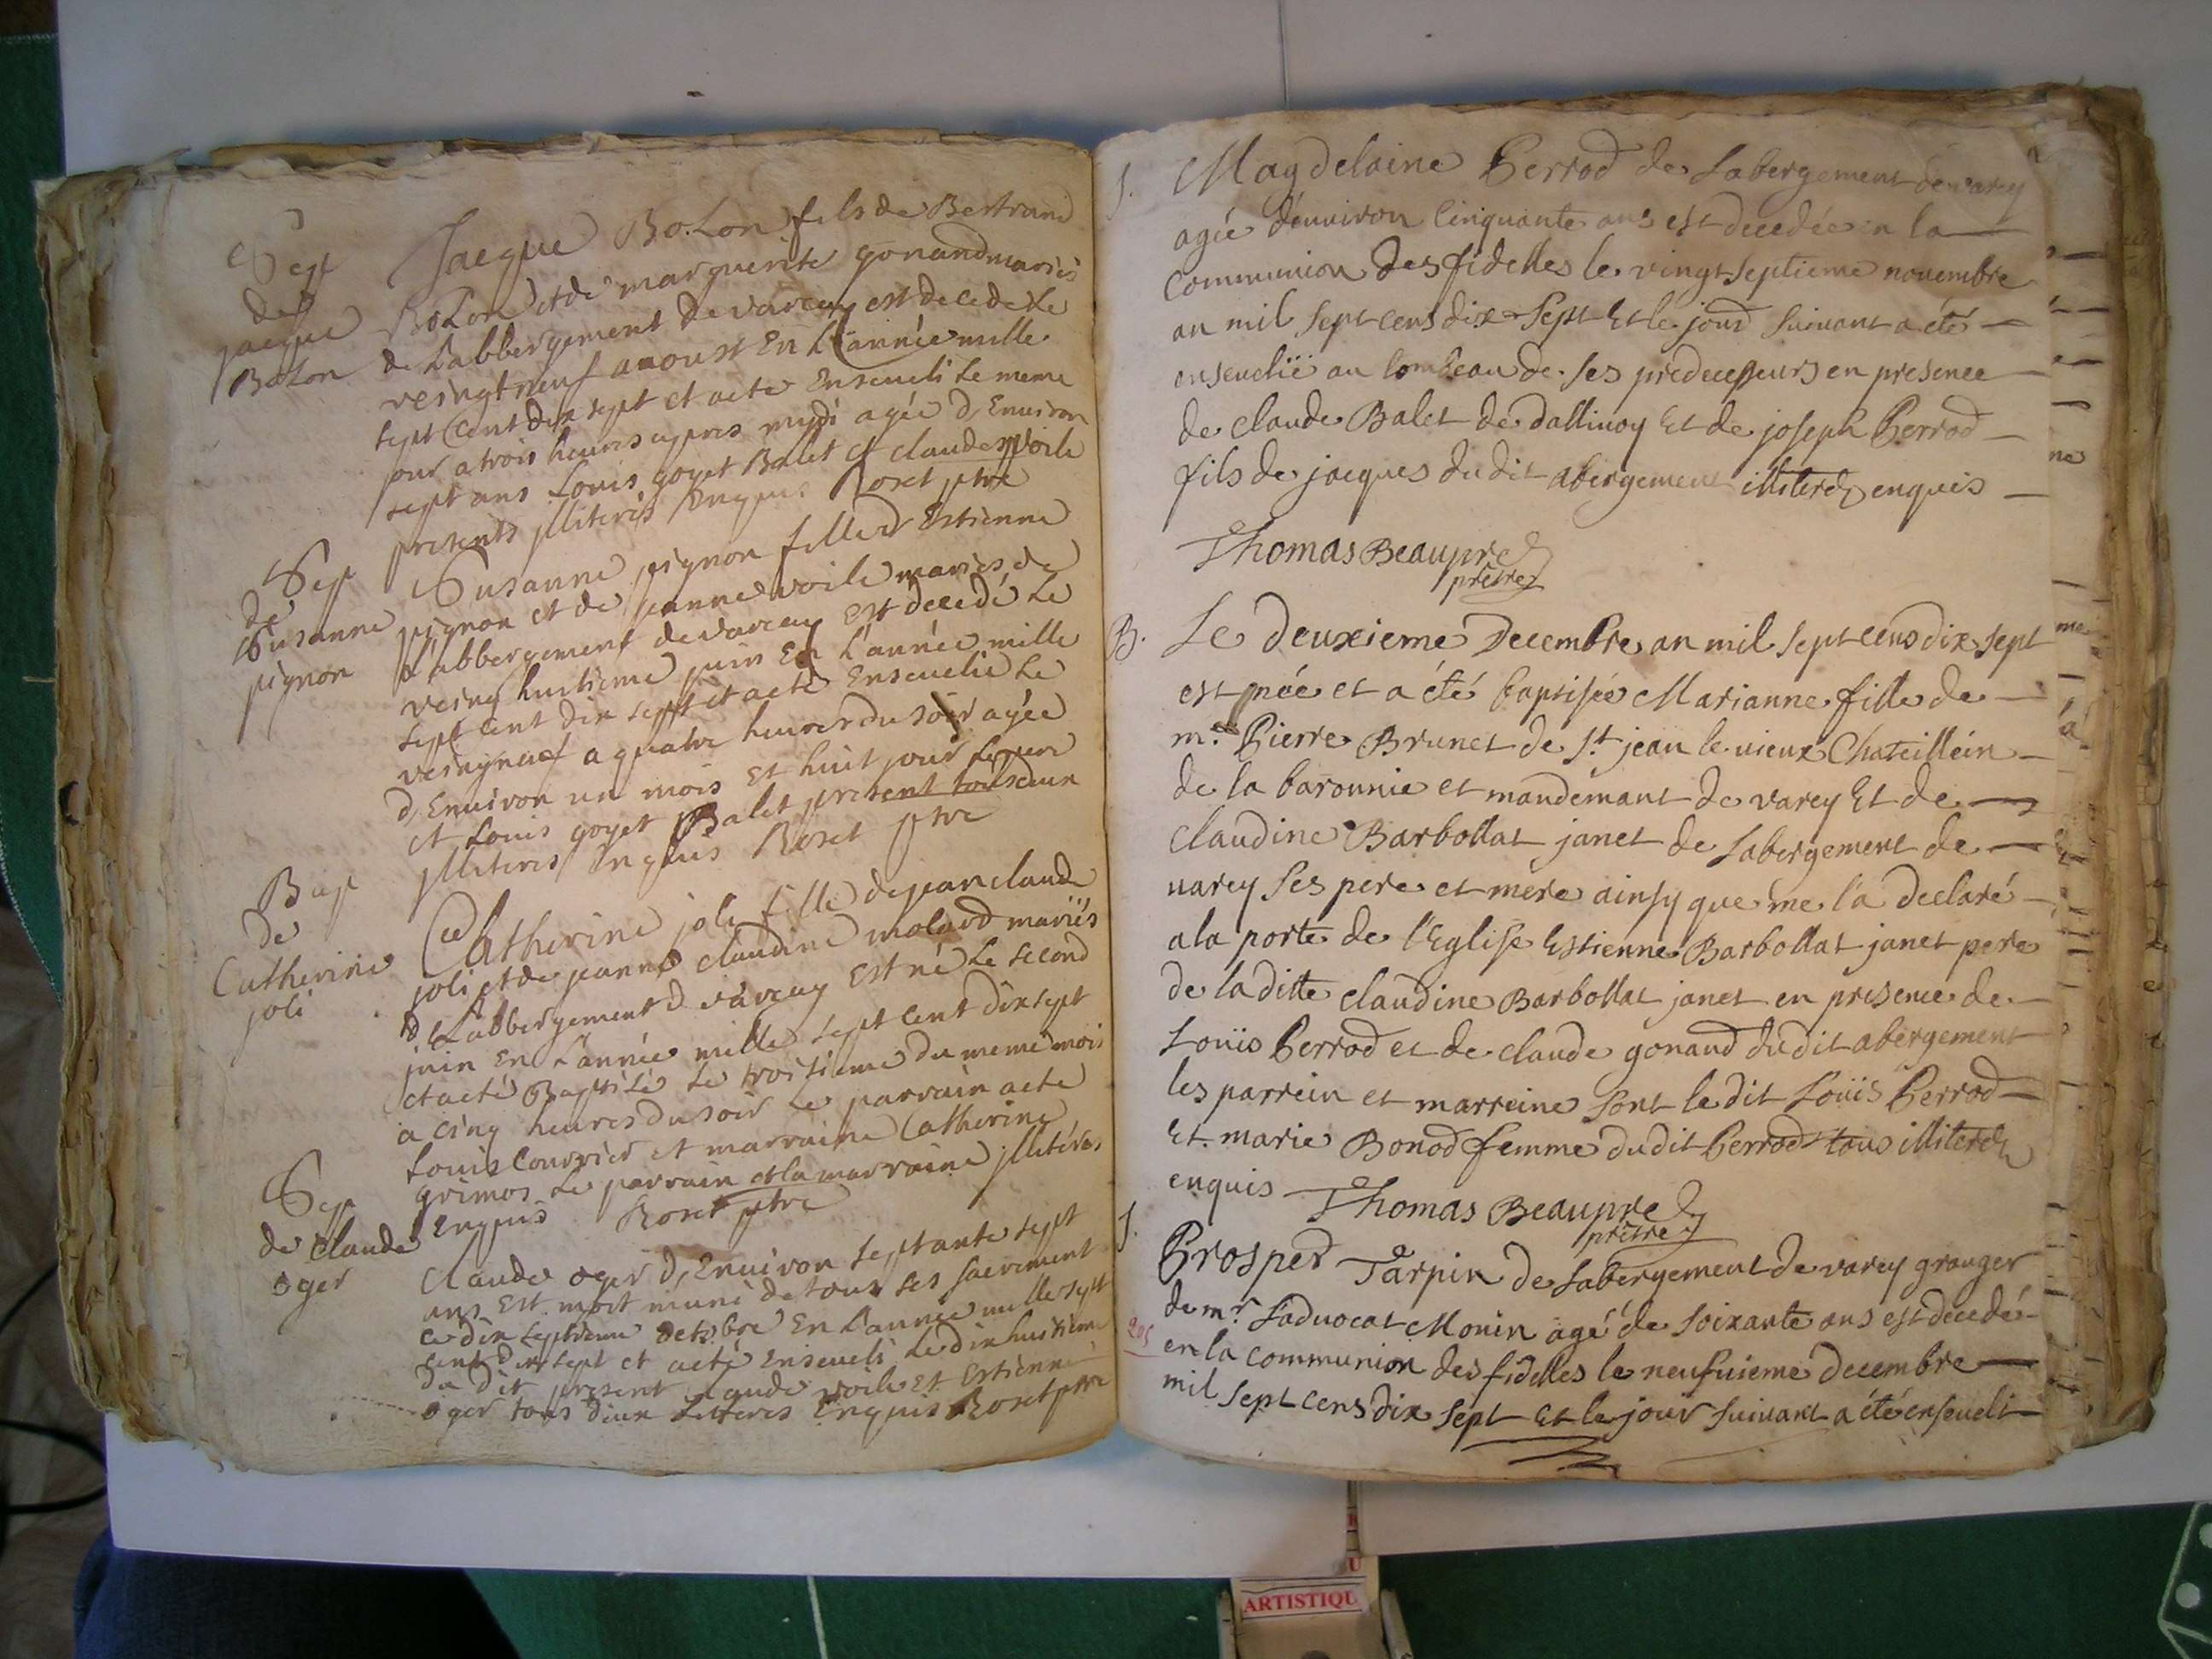 Sep
de
jacque
Bolon
Jacque Bo.Lon fils de Bertrand
BoLon et de marguerite gonand mariés
de Labbergement de varey est decede le
veingt neuf auoust En L'année mille
sept Cent dix sept et aete Enseueli le meme
jour a trois heures apres midi agée d, Enuiron
sept ans Louis goyet Balet et claude voile
presents jlliterés Enquis Roset ptre
Sep
de
Susanne
pignon
Susanne pignon fille d Estienne
pignon et de jeanne voile mariés de
Labbergement de varey Est decedé Le
veing huitieme juin En L'année mille
sept cent dix sept et aeté Enseuelie Le
veingneuf a quatre heures du soir agée
d, Enuiron un mois Et huit jour Le pere
et Louis goyet Balet present tous deux
jlliterés Enquis Roset ptre
Bap
de
Catherine
joli
Catherine joli fille de jean claude
joli et de jeanne claudine molard mariés
de Labbergement d varey Est né Le second
juin En L'année mille sept Cent dix sept
et aeté Baptisé Le troisieme du meme mois
a cinq heures du soir Le parrain aeté
Louis Courrier et marraine Catherine
grimos Le parrain et la marraine jlliterés
Enquis Roset ptre
Sep
de claude
oger
Claude oger d, Enuiron septante sept
ans Est mort muni de tous ses sacrement
ce dix septieme octobre En L'année mille sept
cent dix sept et aeté Enseueli Le dix huitieme
du dit present claude voile Et Estienne
oger tous deux Literes Enquis Roset ptre
S. Magdelaine Perrod de Labergement de varey
agée d'enuiron Cinquante ans est decedée en la
Communion des fidelles le vingt septieme nouembre
an mil sept cens dix sept Et le jour suiuant a été
enseuelïe au tombeau de ses predecesseurs en presence
de claude Balet de dallinoy Et de joseph Perrod
fils de jacques du dit abergement illiterez enquis
Thomas Beaupre
prêtre
B. Le deuxieme Decembre an mil sept cens dix sept
est née et a été baptisée Marianne fille de
m.re Pierre Brunet de S.t jean le uieux Chateillein
de la baronnie et mandemant de varey Et de
Claudine Barbollat janet de Labergement de
uarey ses pere et mere ainsy que me l'a declaré
a la porte de l'Eglise Estienne Barbollat janet pere
de la ditte claudine Barbollat janet en presence de
Loüis Perrod et de claude gonand dudit abergement
les parrein et marreine sont le dit Loüis Perrod
Et marie Bonod femme dudit Perrod tous illiterez
enquis Thomas Beaupre
prêtre
S. Prosper Tarpin de Labergement de varey granger
de m.r Laduocat Monin agé de soixante ans est decedé
205
en la communion des fidelles le neufuieme decembre
mil sept cens dix sept et le jour suiuant a été enseueli
ne
me
ARTISTIQU